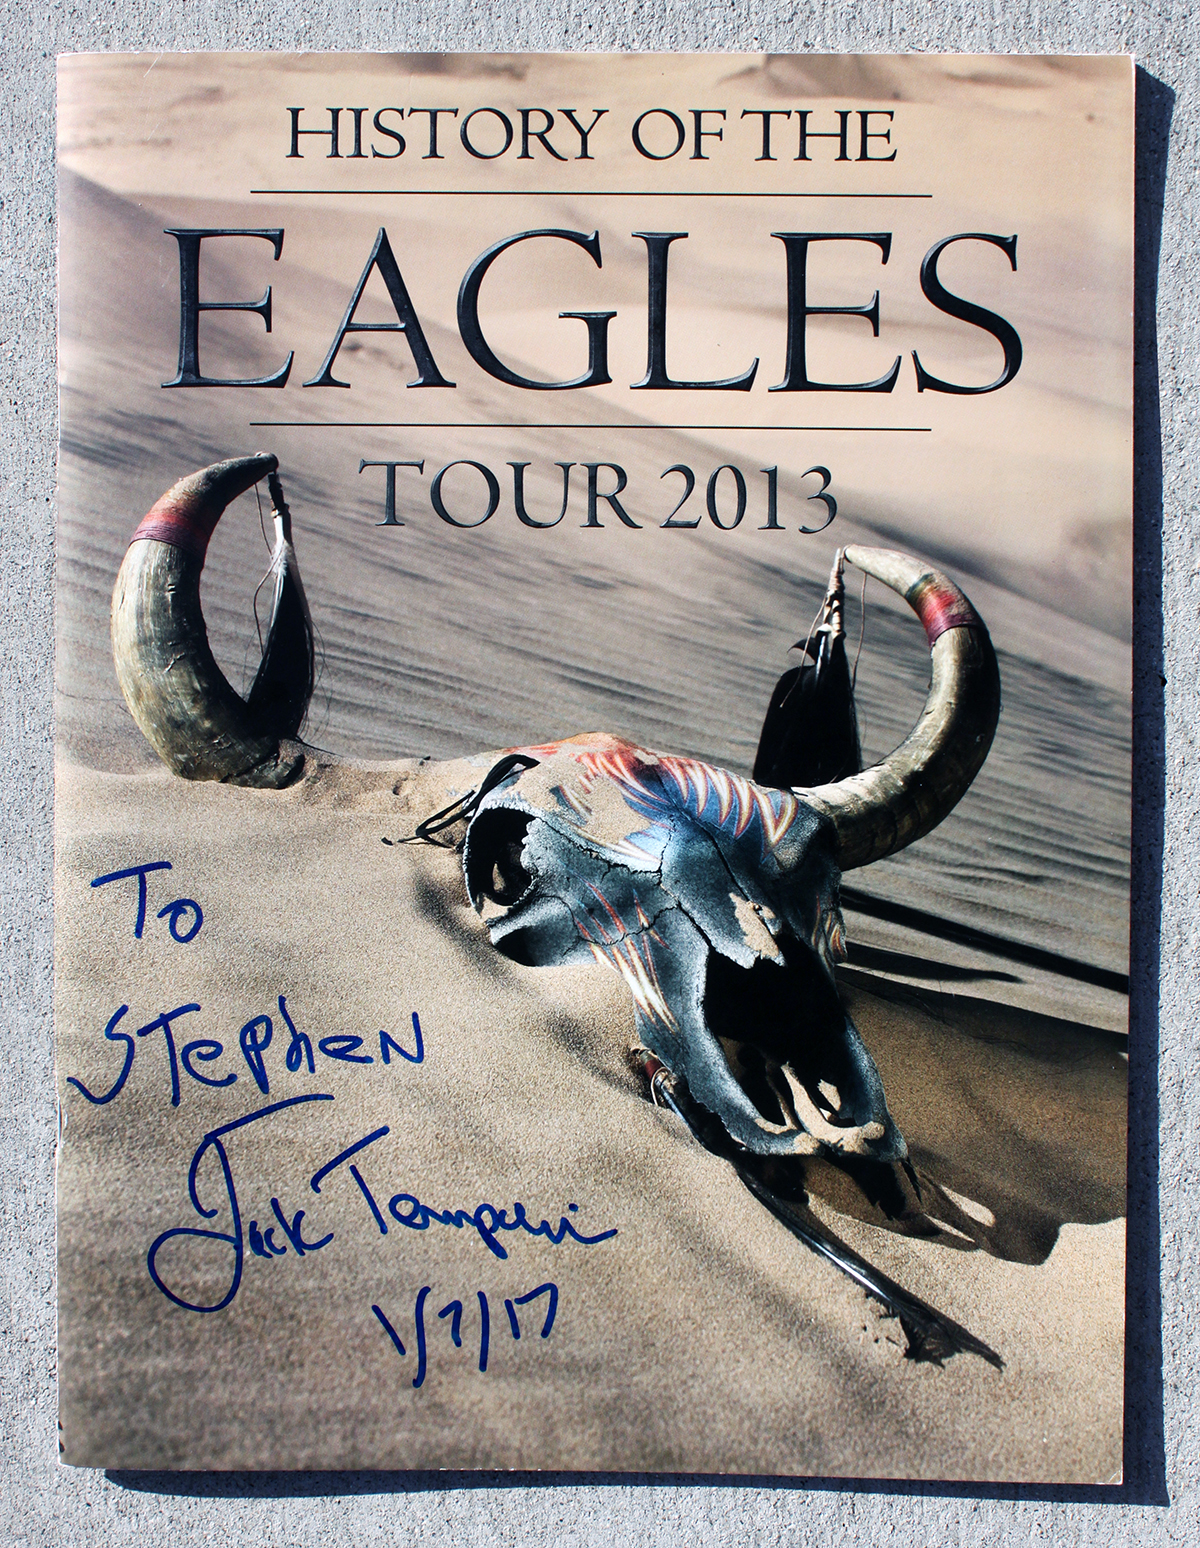 HISTORY OF THE
EAGLES
TOUR 2013
To
Stephen
Jack Tempchin
1/7/17